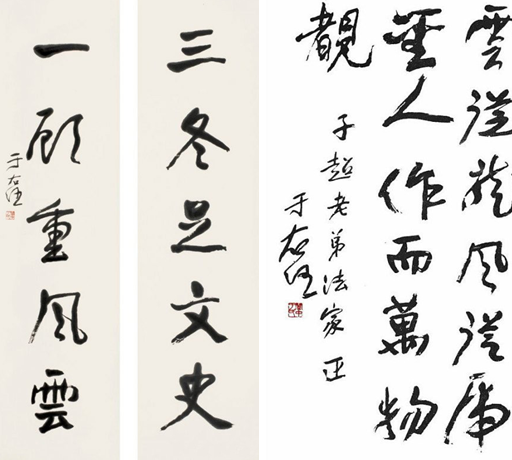 雲從龍風從虎
聖人作而萬物
覩
子超老弟法家正
于右任
三冬足文史
一顧重風雲
于右任